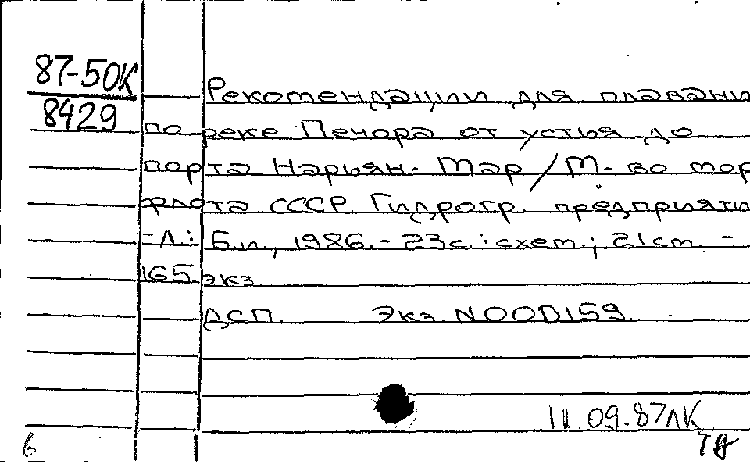 87-50К
8429
Рекомендации для плавани
по реке Печора от устья до
порта Нарьян-Мар / М-во мор
флота СССР. Гидрогр. предприяти
- Л.: Б.и., 1986. - 23с.: схем.; 21см. -
165 экз
ДСП. Экз NOOD159.
11 09.87ЛК
6